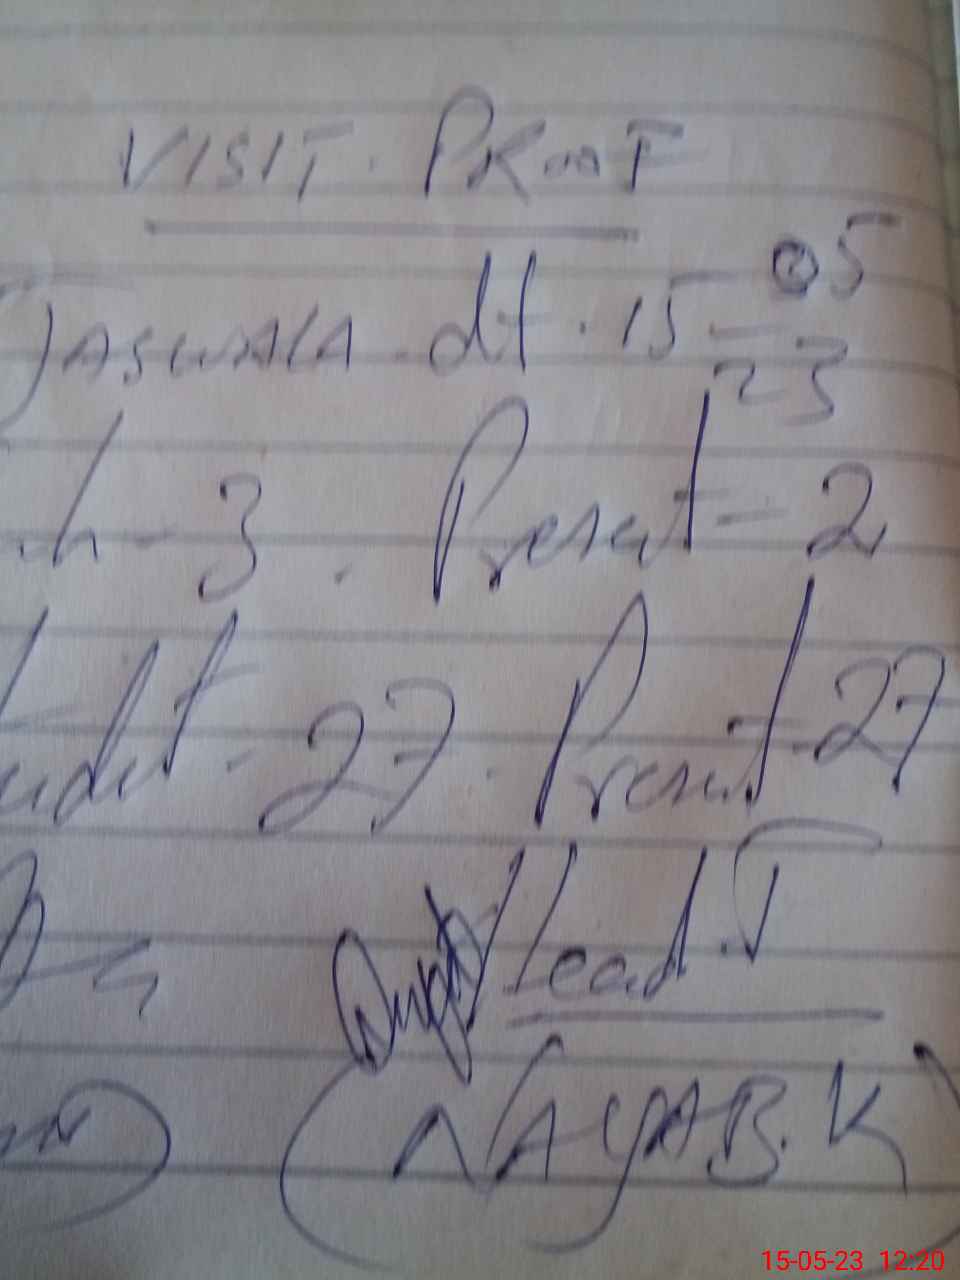 VISIT. PROOF
JASWALA. dt. 15 05
23
ch - 3. Present = 2
Student - 27. Present - 27
Lead. T
(NAYAB. K)
15-05-23 12:20